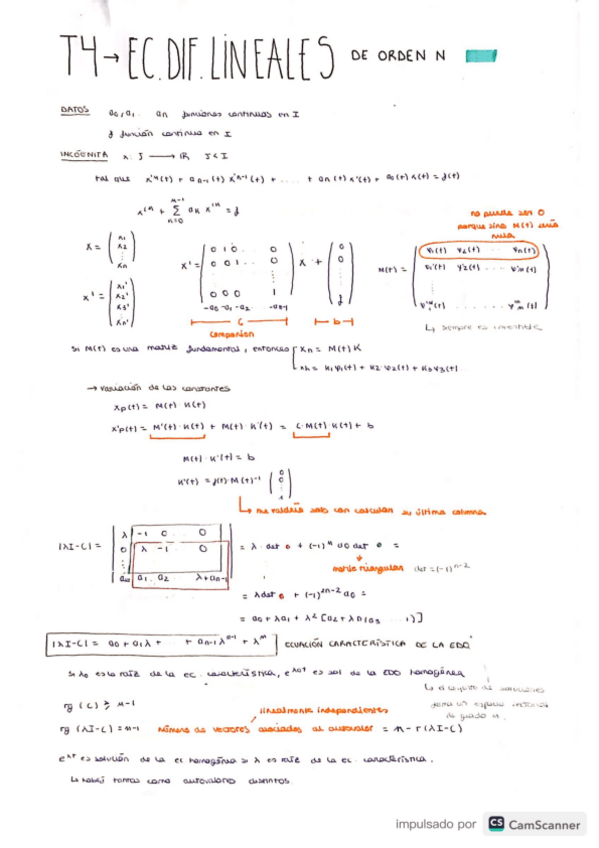 T4 → EC. DIF. LINEALES DE ORDEN N
DATOS a₀, a₁ ... aₙ funciones continuas en I
f función continua en I
INCÓGNITA x: J → ℝ J ⊂ I
tal que xⁿ⁾(t) + aₙ₋₁(t) xⁿ⁻¹⁾(t) + .... + a₁(t) x'(t) + a₀(t) x(t) = f(t)
no puede ser 0
porque sino M(t) sería
nula
X = (x₁ x₂ ⋮ xₙ)
X' = (0 1 0 .. 0 / 0 0 1 .. 0 / ⋮ / 0 0 0 1 / -a₀ -a₁ -a₂ .. -aₙ₋₁) X + (0 0 ⋮ f)
M(t) = (φ₁(t) φ₂(t) ..... φₙ(t) / φ₁'(t) φ₂'(t) .... φₙ'(t) / ⋮
x' = (x₁' x₂' x₃' ⋮ xₙ')
C b
companion
↳ siempre es invertible
Si M(t) es una matriz fundamental, entonces { Xₕ = M(t) K
xₕ = k₁φ₁(t) + k₂φ₂(t) + k₃φ₃(t)
→ variación de las constantes
Xp(t) = M(t) · K(t)
X'p(t) = M'(t) · K(t) + M(t) · K'(t) = C · M(t) · K(t) + b
M(t) · K'(t) = b
K'(t) = f(t) · M(t)⁻¹ (0 0 ⋮ 1)
↳ me valdría solo con calcular su última columna
|λI-C| = |λ -1 0 .. 0 / 0 λ -1 .. 0 / ⋮ / a₀ a₁ a₂ λ+aₙ₋₁| = λ · det
matriz triangular
|λI-C| = a₀ + a₁λ + + aₙ₋₁λⁿ⁻¹ + λⁿ ECUACIÓN CARACTERÍSTICA DE LA EDO
Si λ₀ es la raíz de la ec. característica, e^λ₀t es sol de la EDO homogénea
↳ el conjunto de soluciones
forma un espacio vectorial
de grado n.
rg (C) ≥ n-1
linealmente independientes
rg (λI-C) = n-1 número de vectores asociados al autovalor = n - r(λI-C)
e^λt es solución de la ec homogénea si λ es raíz de la ec. característica.
↳ habrá tantas como autovalores distintos.
impulsado por CS CamScanner